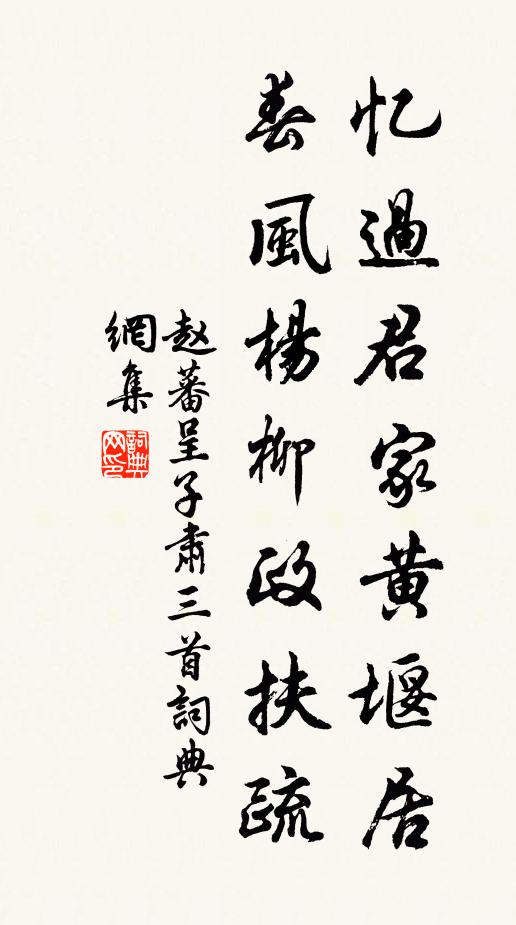 忆過君家黄堰居
春風楊柳政扶疏
赵蕃呈子肅三首詞典
網集
詞典網印